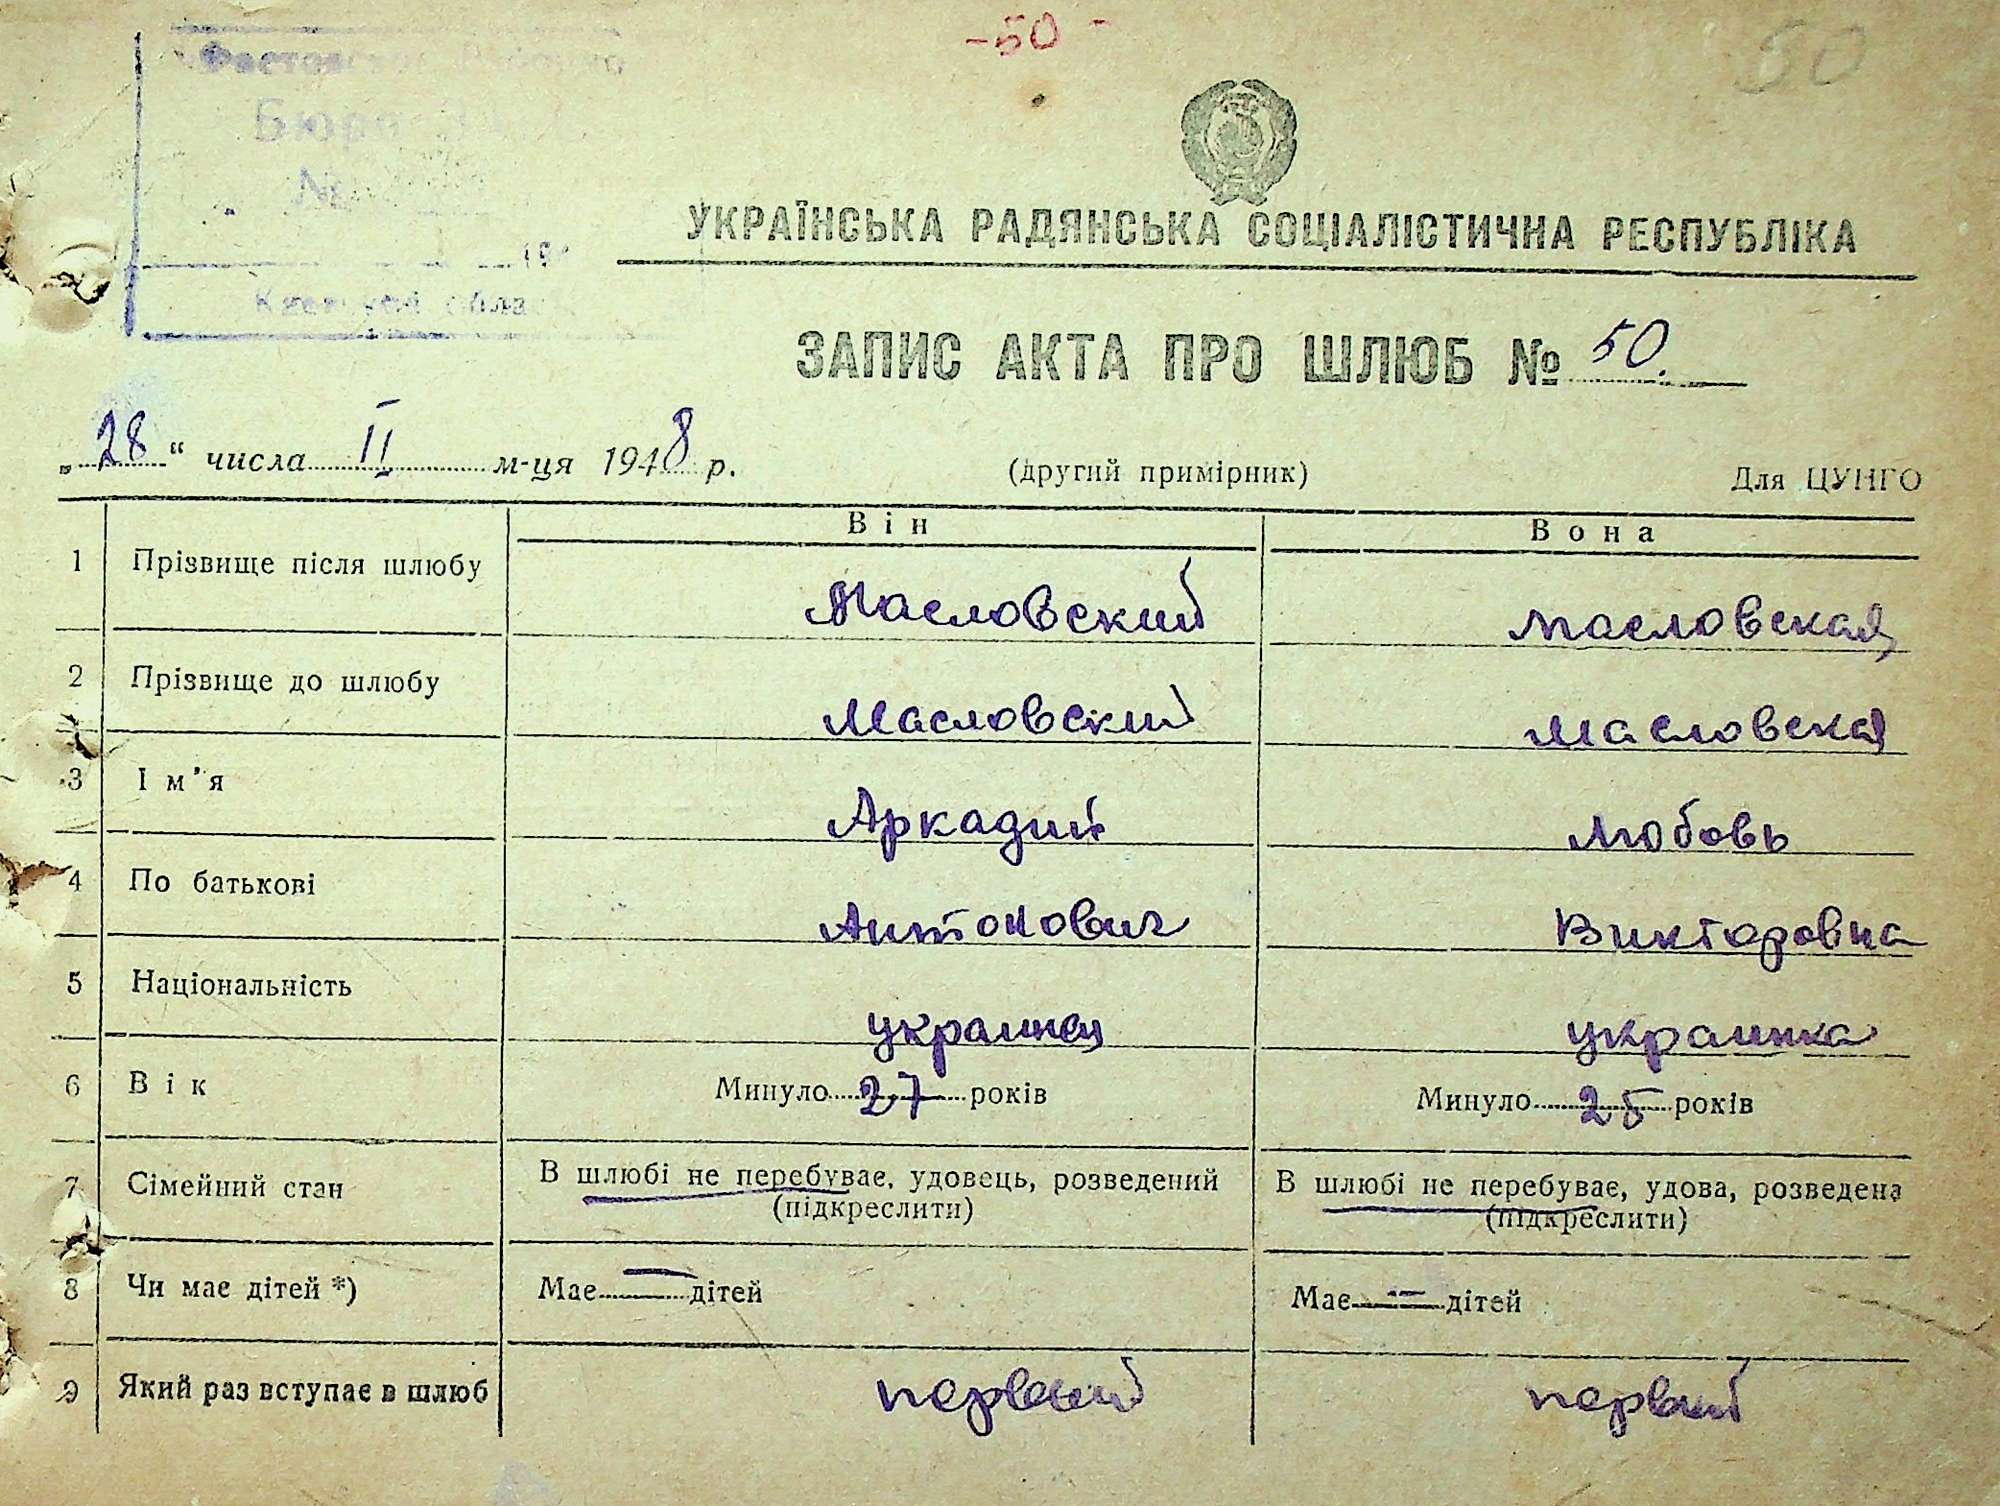 -50-
50
Бюро
№
19
УКРАЇНСЬКА РАДЯНСЬКА СОЦІАЛІСТИЧНА РЕСПУБЛІКА
ЗАПИС АКТА ПРО ШЛЮБ № 50.
„28“ числа II м-ця 1948 р. (другий примірник) Для ЦУНГО
Він Вона
1 Прізвище після шлюбу Масловский Масловская
2 Прізвище до шлюбу Масловский Масловская
3 Ім'я Аркадий Любовь
4 По батькові Антонович Викторовна
5 Національність украинец украинка
6 Вік Минуло 27 років Минуло 25 років
7 Сімейний стан В шлюбі не перебуває, удовець, розведений В шлюбі не перебуває, удова, розведена
(підкреслити) (підкреслити)
8 Чи має дітей *) Має — дітей Має — дітей
9 Який раз вступає в шлюб первый первый